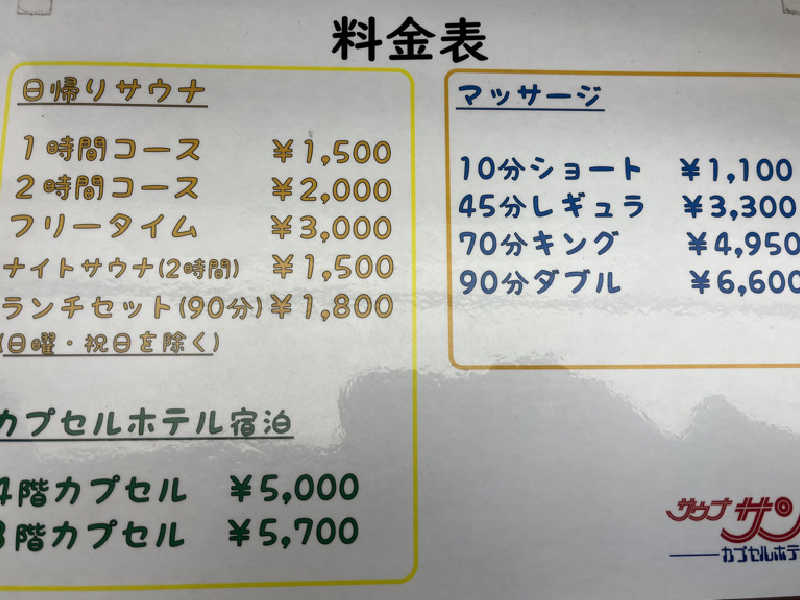 料金表
日帰りサウナ
1時間コース ¥1,500
2時間コース ¥2,000
フリータイム ¥3,000
ナイトサウナ(2時間) ¥1,500
ランチセット(90分) ¥1,800
(日曜・祝日を除く)
カプセルホテル宿泊
4階カプセル ¥5,000
階カプセル ¥5,700
マッサージ
10分ショート ¥1,100
45分レギュラ ¥3,300
70分キング ¥4,950
90分ダブル ¥6,600
サウナ サン
カプセルホテ